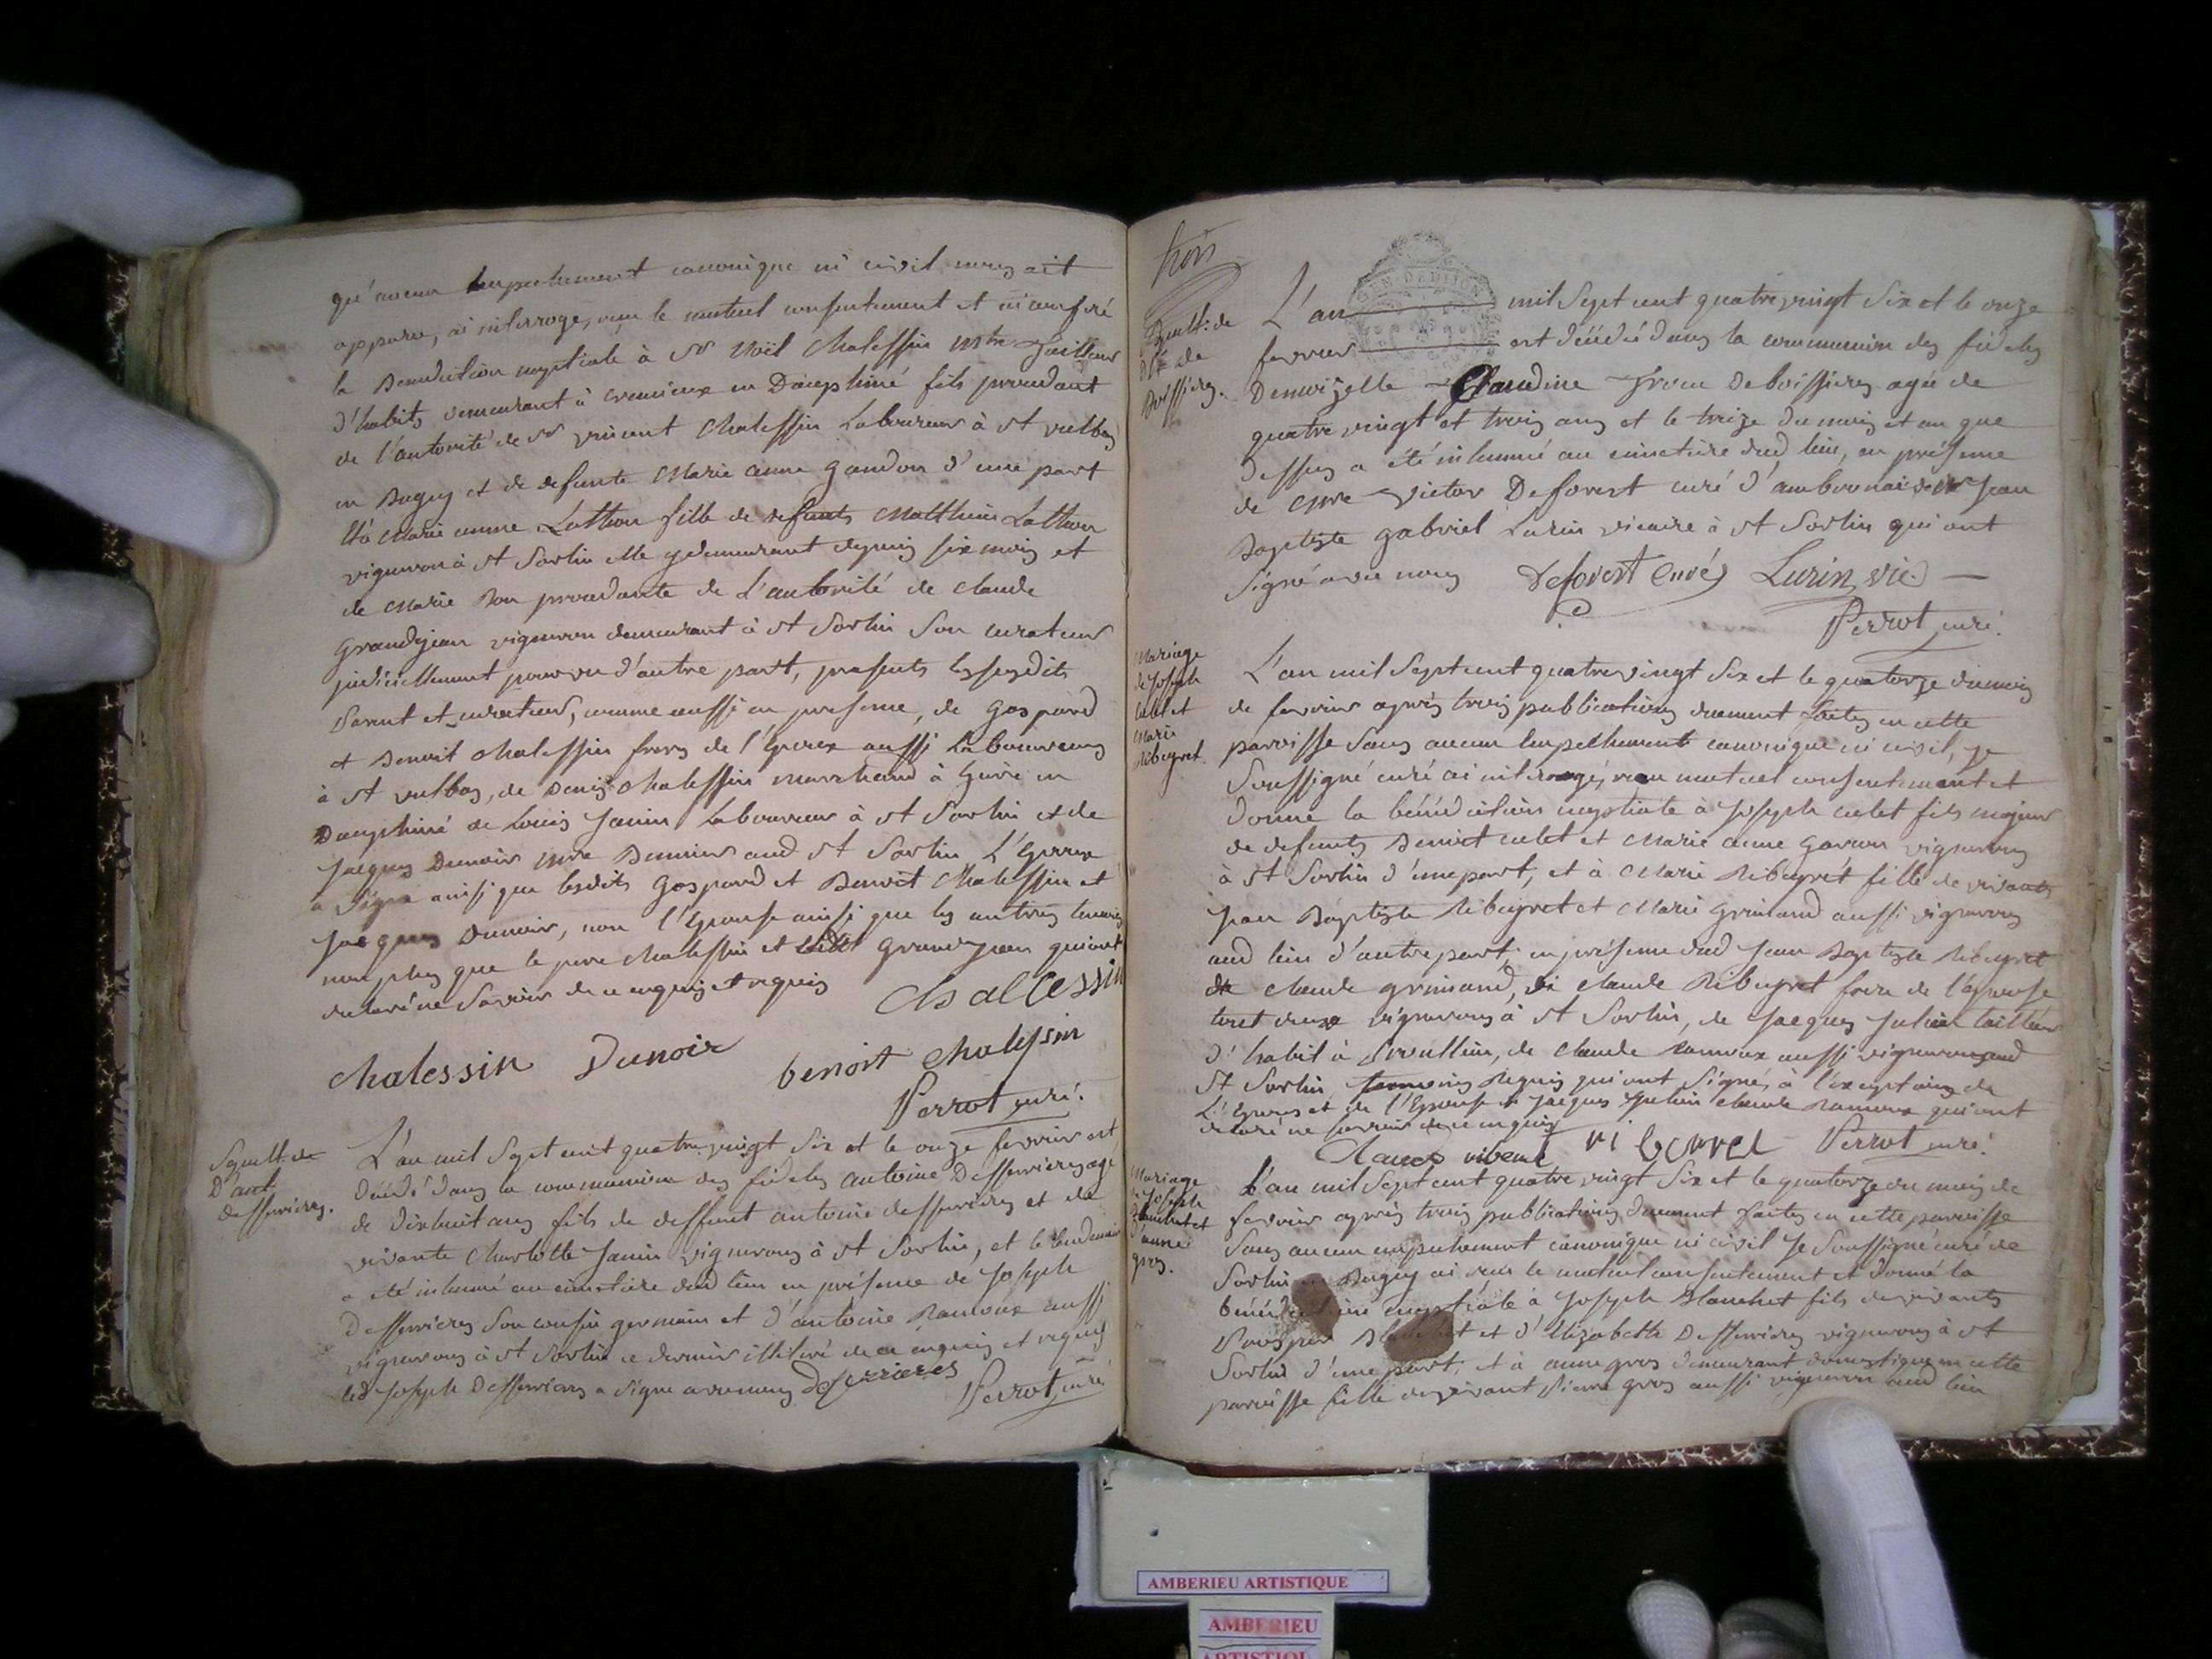 qu'aucun Empechement canonique ni civil nous ait
apparu, ai interrogé, reçu le mutuel consentement et ai conferé
la Benediction nuptiale à Sr Noël Chalessin mtre Tailleur
d'habits demeurant à cremieux en Dauphiné fils procedant
de l'autorité de Sr vincent Chalessin Laboureur à St vulbas
en Bugey et de defunte Marie anne gandon d'une part
Et à Marie anne Lathon fille de defunts Matthieu Lathon
vigneron à St Sorlin elle y demeurant depuis six mois et
de Marie Bon procedante de L'autorité de claude
grandjean vigneron demeurant à St Sorlin Son curateur
judiciellement pourvu d'autre part, presents les susdits
Parent et curateur, comme aussi en presence, de gaspard
et Benoit chalessin freres de l'Epoux aussi Laboureurs
à St vulbas, de Denis chalessin marchand à hieres en
Dauphiné de Louis Janin Laboureur à St Sorlin et de
Jacques Dunoir aud St Sorlin L'Epoux
a Signé ainsi que lesdits gaspard et Benoit Chalessin et
Jacques Dunoir, non l'Epouse ainsi que les autres temoins
non plus que le pere chalessin et ledit grandjean qui ont
declaré ne Savoir de ce enquis et requis chalessin
chalessin Dunoir benoit chalessin
Perrot curé.
Sepult. de
D'ant
desserrieres.
L'an mil Sept cent quatre vingt Six et le onze fevrier est
décédé dans la communion des fideles antoine Desserrieres agé
de dixhuit ans fils de deffunt antoine desserrieres et de
vivante Charlotte Janin vignerons à St Sorlin, et le lendemain
a été inhumé au cimetiere dud lieu en présence de Joseph
Desserrieres Son cousin germain et d'antoine Ramoux aussi
vignerons à St Sorlin ce dernier illiteré de ce enquis et requis
led Joseph Desserrieres a signé avec nous Deserrieres
Perrot curé
trois
GEN DE DIJON
Sepult: de
Dlle de
Boissieres.
L'an mil Sept cent quatre vingt Six et le onze
fevrier est décédé dans la communion des fideles
Demoizelle Claudine Deboissieres agée de
quatre vingt et trois ans et le treize du mois et an que
dessus a été inhumé au cimetiere dud lieu, en présence
de Mre victor Deforest curé d'ambronai et de Mr Jean
Baptiste gabriel Lurin vicaire à St Sorlin qui ont
Signé avec nous Deforest curé Lurin vic.
Perrot curé.
Mariage
de Joseph
culet et
Marie
Ribeyret.
L'an mil Sept cent quatre vingt Six et le quatorze du mois
de fevrier après trois publications duement faites en cette
paroisse Sans aucun Empechement canonique ni civil, je
Soussigné curé ai interrogé, reçu mutuel consentement et
donné la bénédiction nuptiale à Joseph culet fils majeur
de defunts Benoit culet et Marie anne garron vignerons
à St Sorlin d'une part, et à Marie Ribeyret fille de vivants
Jean Baptiste Ribeyret et Marie grimand aussi vignerons
aud lieu d'autre part, en présence dud Jean Baptiste Ribeyret
de claude grimand, de claude Ribeyret frere de l'épouse
tous deux vignerons à St Sorlin, de Jacques Julien tailleur
d'habit à Souclin, de claude Ramoux aussi vigneron aud
St Sorlin temoins Requis qui ont Signé, à l'exception de
L'Epoux et de l'Epouse de Jacques Julien claude Ramoux qui ont
declaré ne savoir de ce enquis
Claude riberet ri beyret Perrot curé.
Mariage
de Joseph
Blanchet et
d'anne
gros.
L'an mil Sept cent quatre vingt Six et le quatorze du mois de
fevrier après trois publications duement faites en cette paroisse
Sans aucun empechement canonique ni civil Je Soussigné curé de
Sorlin en Bugey ai reçu le mutuel consentement et donné la
bénédiction nuptiale à Joseph Blanchet fils de vivants
Prosper Blanchet et d'Elizabeth Desserrieres vignerons à St
Sorlin d'une part; et à anne gros demeurant domestique en cette
paroisse fille de vivant Pierre gros aussi vigneron aud lieu
AMBERIEU ARTISTIQUE
AMBERIEU
ARTISTIQU